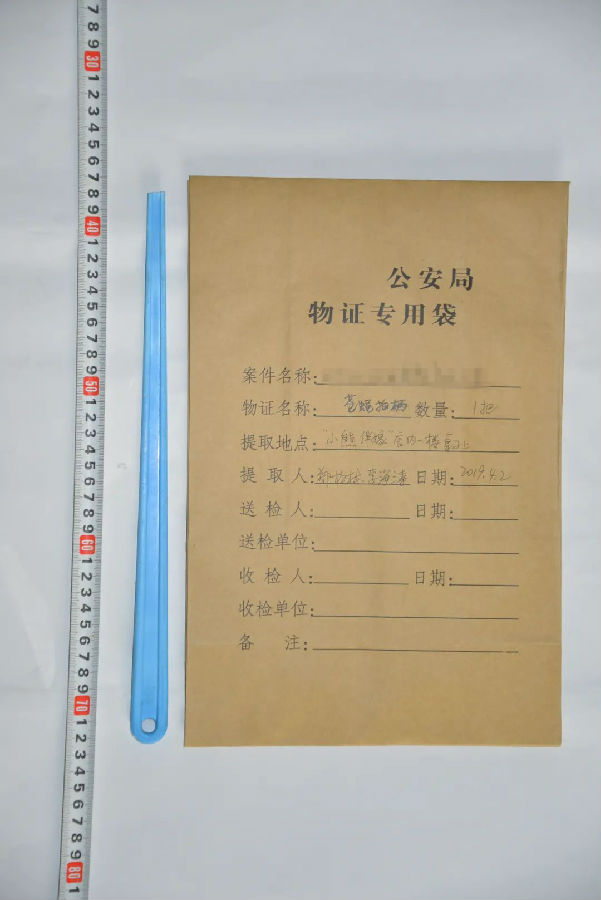 7
8
9
30
1
2
3
4
5
6
7
8
9
40
1
2
3
4
5
6
7
8
9
50
1
2
3
4
5
6
7
8
9
60
1
2
3
4
5
6
7
8
9
70
1
2
3
4
5
6
7
8
9
80
1
公安局
物证专用袋
案件名称:
物证名称: 苍蝇拍柄 数量: 1把
提取地点: "小熊 "店内一楼
提 取 人: 李海涛 日期: 2019.4.2
送 检 人: 日期:
送检单位:
收 检 人: 日期:
收检单位:
备 注: